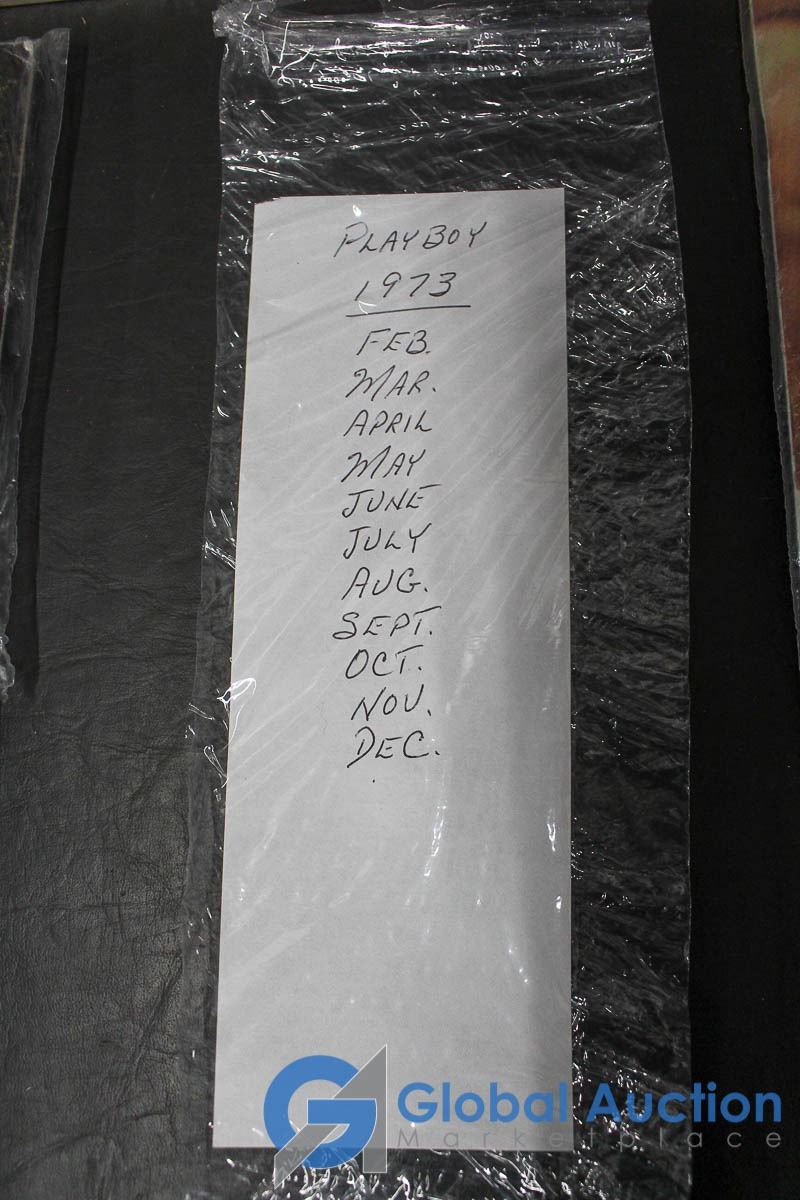 PLAYBOY
1973
FEB.
MAR.
APRIL
MAY
JUNE
JULY
AUG.
SEPT.
OCT.
NOV.
DEC.
GA Global Auction
Marketplace